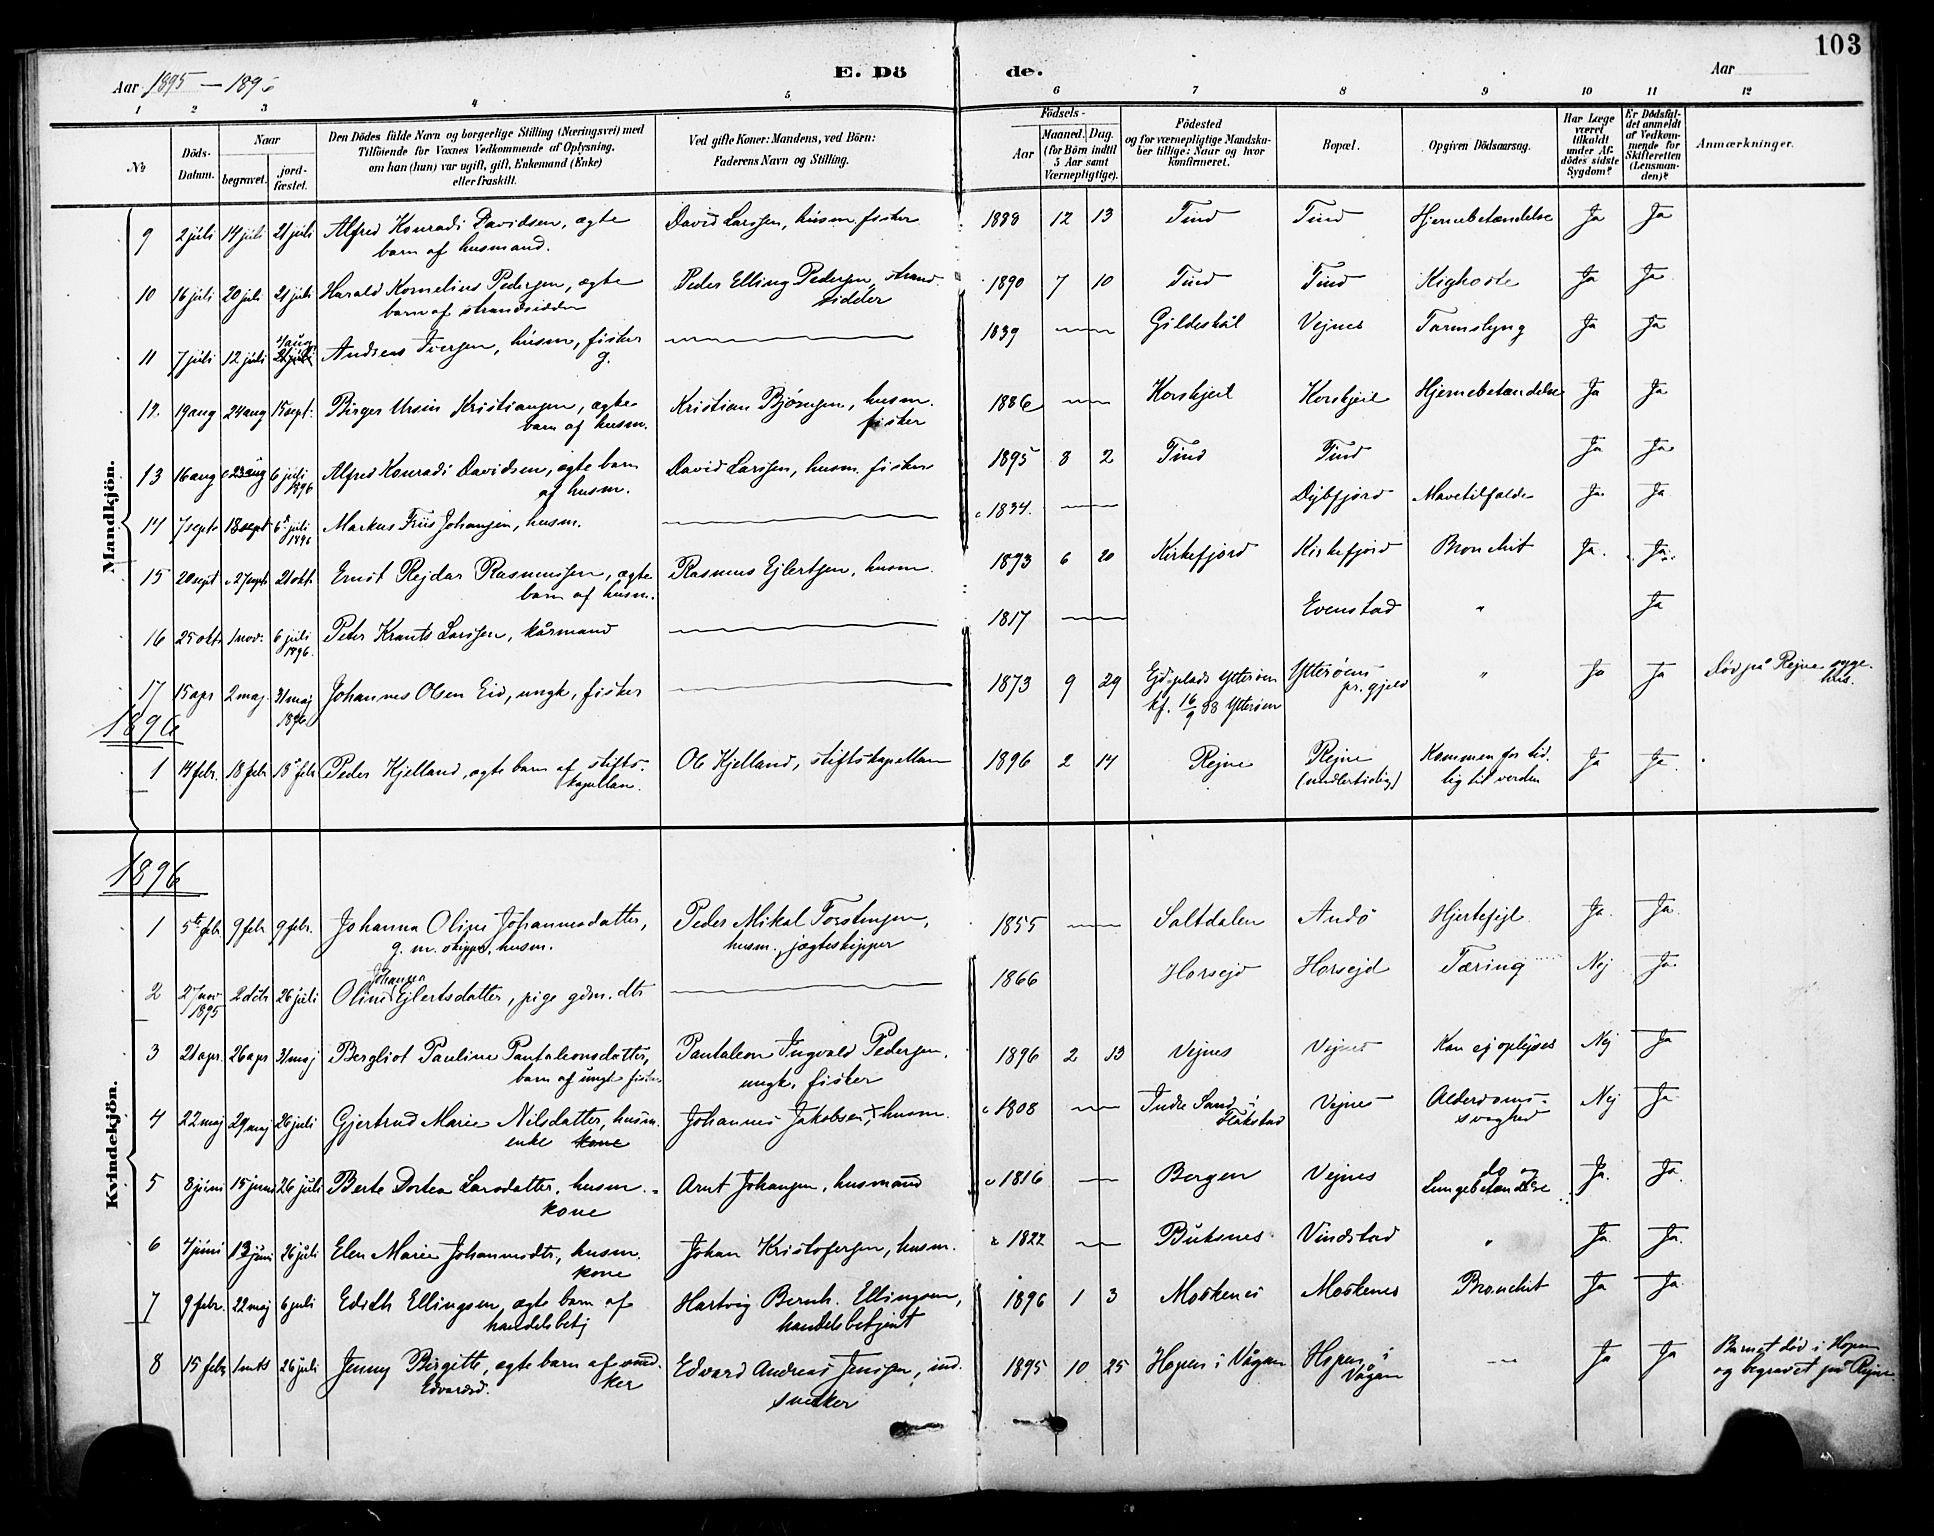 103
Aar 1895 — 1896
E. Dö de.
Aar
1 2 3 4 5 6 7 8 9 10 11 12
No
Döds-Datum.
Naar
begravet.
jord-fæstet.
Den Dödes fulde Navn og borgerlige Stilling (Næringsvei) med
Tilföiende for Voxnes Vedkommende af Oplysning,
om han (hun) var ugift, gift, Enkemand (Enke)
eller fraskilt.
Ved gifte Koner: Mandens, ved Börn:
Faderens Navn og Stilling.
Födsels-
Aar
Maaned. Dag.
(for Börn indtil
5 Aar samt
Værnepligtige).
Födested
og for værnepligtige Mandska-
ber tillige: Naar og hvor
konfirmeret.
Bopæl.
Opgiven Dödsaarsag.
Har Læge
været
tilkaldt
under Af-
dödes sidste
Sygdom?
Er Dödsfal-
det anmeldt
af Vedkom-
mende for
Skifteretten
(Lensman-
den)?
Anmærkninger.
Mandkjön.
9 2 juli 14 juli 21 juli Alfred Konradi Davidsen, ægte David Larssen, husm. fisker 1888 12 13 Tind Tind Hjernebetændelse Ja Ja
barn af husmand.
10 16 juli 20 juli 21 juli Harald Kornelius Pedersen, ægte Peder Elling Pedersen, strand- 1890 7 10 Tind Tind Kighoste Ja Ja
barn af strandsidder sidder
11 7 juli 12 juli 4 aug 21 juli Andreas Iversen, husm, fisker 1839 Gildeskål Vejnes Tarmslyng Ja Ja
g.
12. 19 aug 24 aug 15 sept. Birger Ursin Kristiansen, ægte Kristian Bjørnsen, husm. 1886 Korshjeil Korshjeil Hjernebetændelse Ja Ja
barn af husm. fisker
13 16 aug 23 aug 6 juli 1896 Alfred Konradi Davidsen, ægte barn David Larssen, husm. fisker 1895 8 2 Tind Tind Ja Ja
af husm.
14 7 sept 18 sept 6 juli 1896 Markus Friis Johansen, husm. c 1834 Dybfjord Mavetilfælde Ja Ja
15 20 sept 27 sept 21 okt Ernst Rejdar Rasmussen, ægte Rasmus Ejlertsen, husm. 1893 6 20 Kirkefjord Kirkefjord Bronchit Ja. Ja.
barn af husm.
16 25 okt 1 nov. 6 juli 1896. Peter Krants Larssen, kårmand 1817 Evenstad " Ja
17 15 apr 2 maj 31 maj 1896 Johannes Olsen Eid, ungk, fisker 1873 9 29 Ejd-plads Ytterøen Ytterøens " Ja Ja Død på Rejne syge-
kf. 16/9 88 Ytterøen pr. gjeld hus.
1896
1 14 febr. 18 febr 18 febr Peder Kjelland, ægte barn af stifts- Ole Kjelland, stiftskapellan 1896 2 14 Rejne Rejne Kommen for tid- Ja Ja
kapellan. (midlertidig) lig til verden
Kvindekjön.
1896
1 5te febr 9 febr 9 febr. Johanna Oline Johannesdatter, Peder Mikal Torstensen, 1855 Saltdalen Andö Hjertefejl Ja. Ja.
g. m. skipper, husm. husm., jægteskipper
2 27 nov 1895 2 dcbr 26 juli Oline Johanna Ejlertsdatter, pige gdm. dtr 1866 Horsejd Horsejd Tæring Nej Ja.
3 21 apr. 26 apr 31 maj Bergliot Pauline Pantaleonsdatter, Pantaleon Ingvald Pedersen. 1896 2 13 Vejnes Vejnes Kan ej oplyses Nej Ja
barn af ungk fisker ungk, fisker
4 22 maj 29 maj 26 juli Gjertrud Marie Nilsdatter, husm. Johannes Jakobsen, husm. c 1808 Indre Sand i Vejnes Alderdoms- Nej Ja
enke kone Flakstad svaghed
5 8 juni 15 juni 26 juli Berte Dortea Larsdatter, husm. Arnt Johansen, husmand c 1816 Bergen Vejnes do og Ja. Ja.
kone Lungebetændelse
6 4 juni 13 juni 26 juli Elen Marie Johannesdtr, husm. Johan Kristofersen, husm. c 1822 Buksnes Vindstad " Ja. Ja.
kone
7 9 febr. 22 maj 6 juli Edith Ellingsen, ægte barn af Hartvig Bernh. Ellingsen, 1896 1 3 Moskenes Moskenes Bronchit Ja Ja
handelsbetj handelsbetjent
8 15 febr. 1 mts 26 juli Jenny Birgitte, ægte barn af sned- Edvard Andreas Jenssen, ind. 1895 10 25 Hopen i Vågan Hopen i Ja Ja Barnet død i Hopen
Edvardsd. ker snedker Vågan og begravet på Rejne.